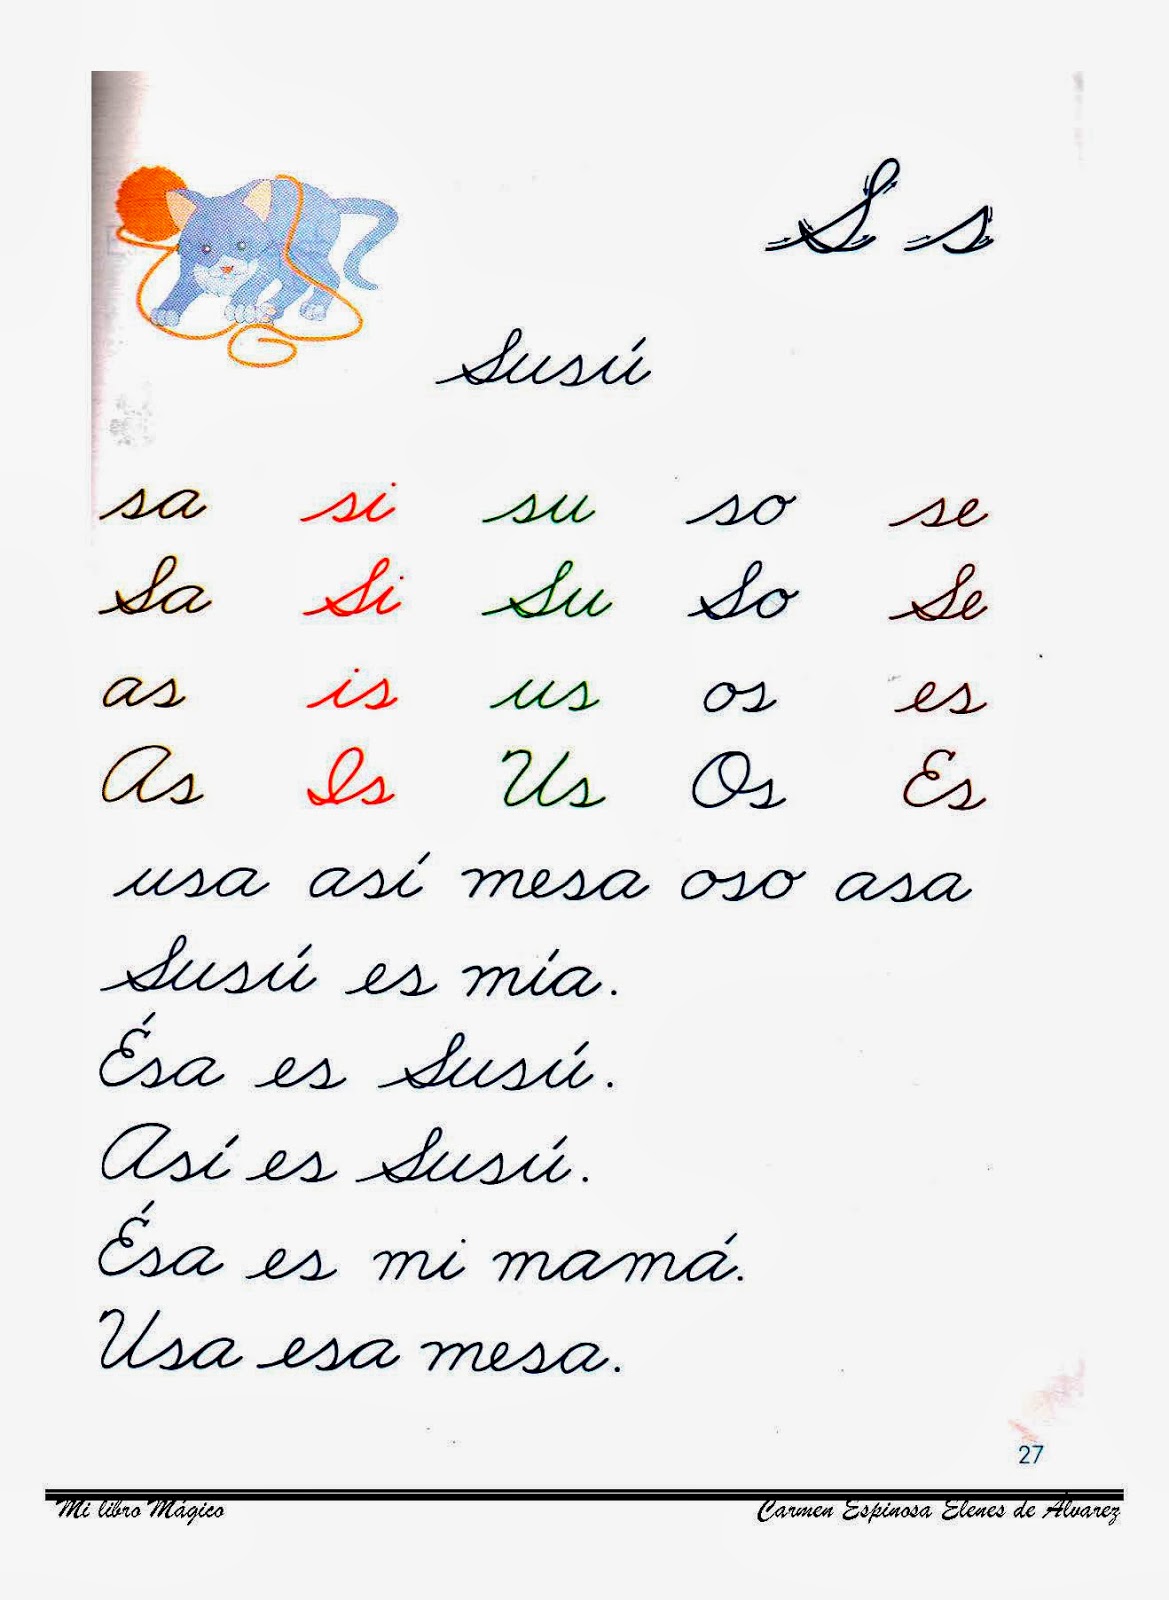 S s
Susú
sa si su so se
Sa Si Su So Se
as is us os es
As Is Us Os Es
usa así mesa oso asa
Susú es mía.
Ésa es Susú.
Así es Susú.
Ésa es mi mamá.
Usa esa mesa.
27
Mi libro Mágico Carmen Espinosa Elenes de Alvarez